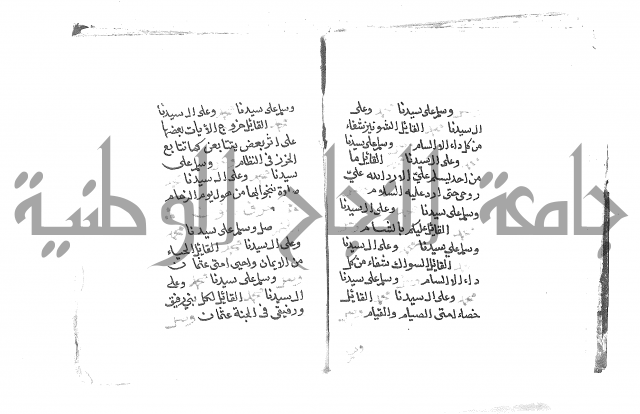 وسلم على سيدنا وعلى
ال سيدنا القائل الشونيز شفاء
من كل داء الا السام وسلم على سيدنا
وعلى ال سيدنا القائل ما
من احد يسلم علي الا رد الله علي
روحي حتى ارد عليه السلام
وسلم على سيدنا وعلى ال سيدنا
القائل عليكم بالشام
وسلم على سيدنا وعلى ال سيدنا
القائل السواك شفاء من كل
داء الا السام وسلم على سيدنا
وعلى ال سيدنا القائل
خصاء امتي الصيام والقيام
وسلم على سيدنا وعلى ال سيدنا
القائل خروج الايات بعضها
على اثر بعض يتتابعن كما تتابع
الخرز في النظام وسلم على
سيدنا وعلى ال سيدنا
صلوة تنجو ابها من هول يوم الزحام
صل وسلم على سيدنا
وعلى ال سيدنا القائل الحيا
من الايمان واحيى امتي عثمان
وسلم على سيدنا وعلى
ال سيدنا القائل لكل نبي رفيق
ورفيقي في الجنة عثمان
جامعة النجاح الوطنية